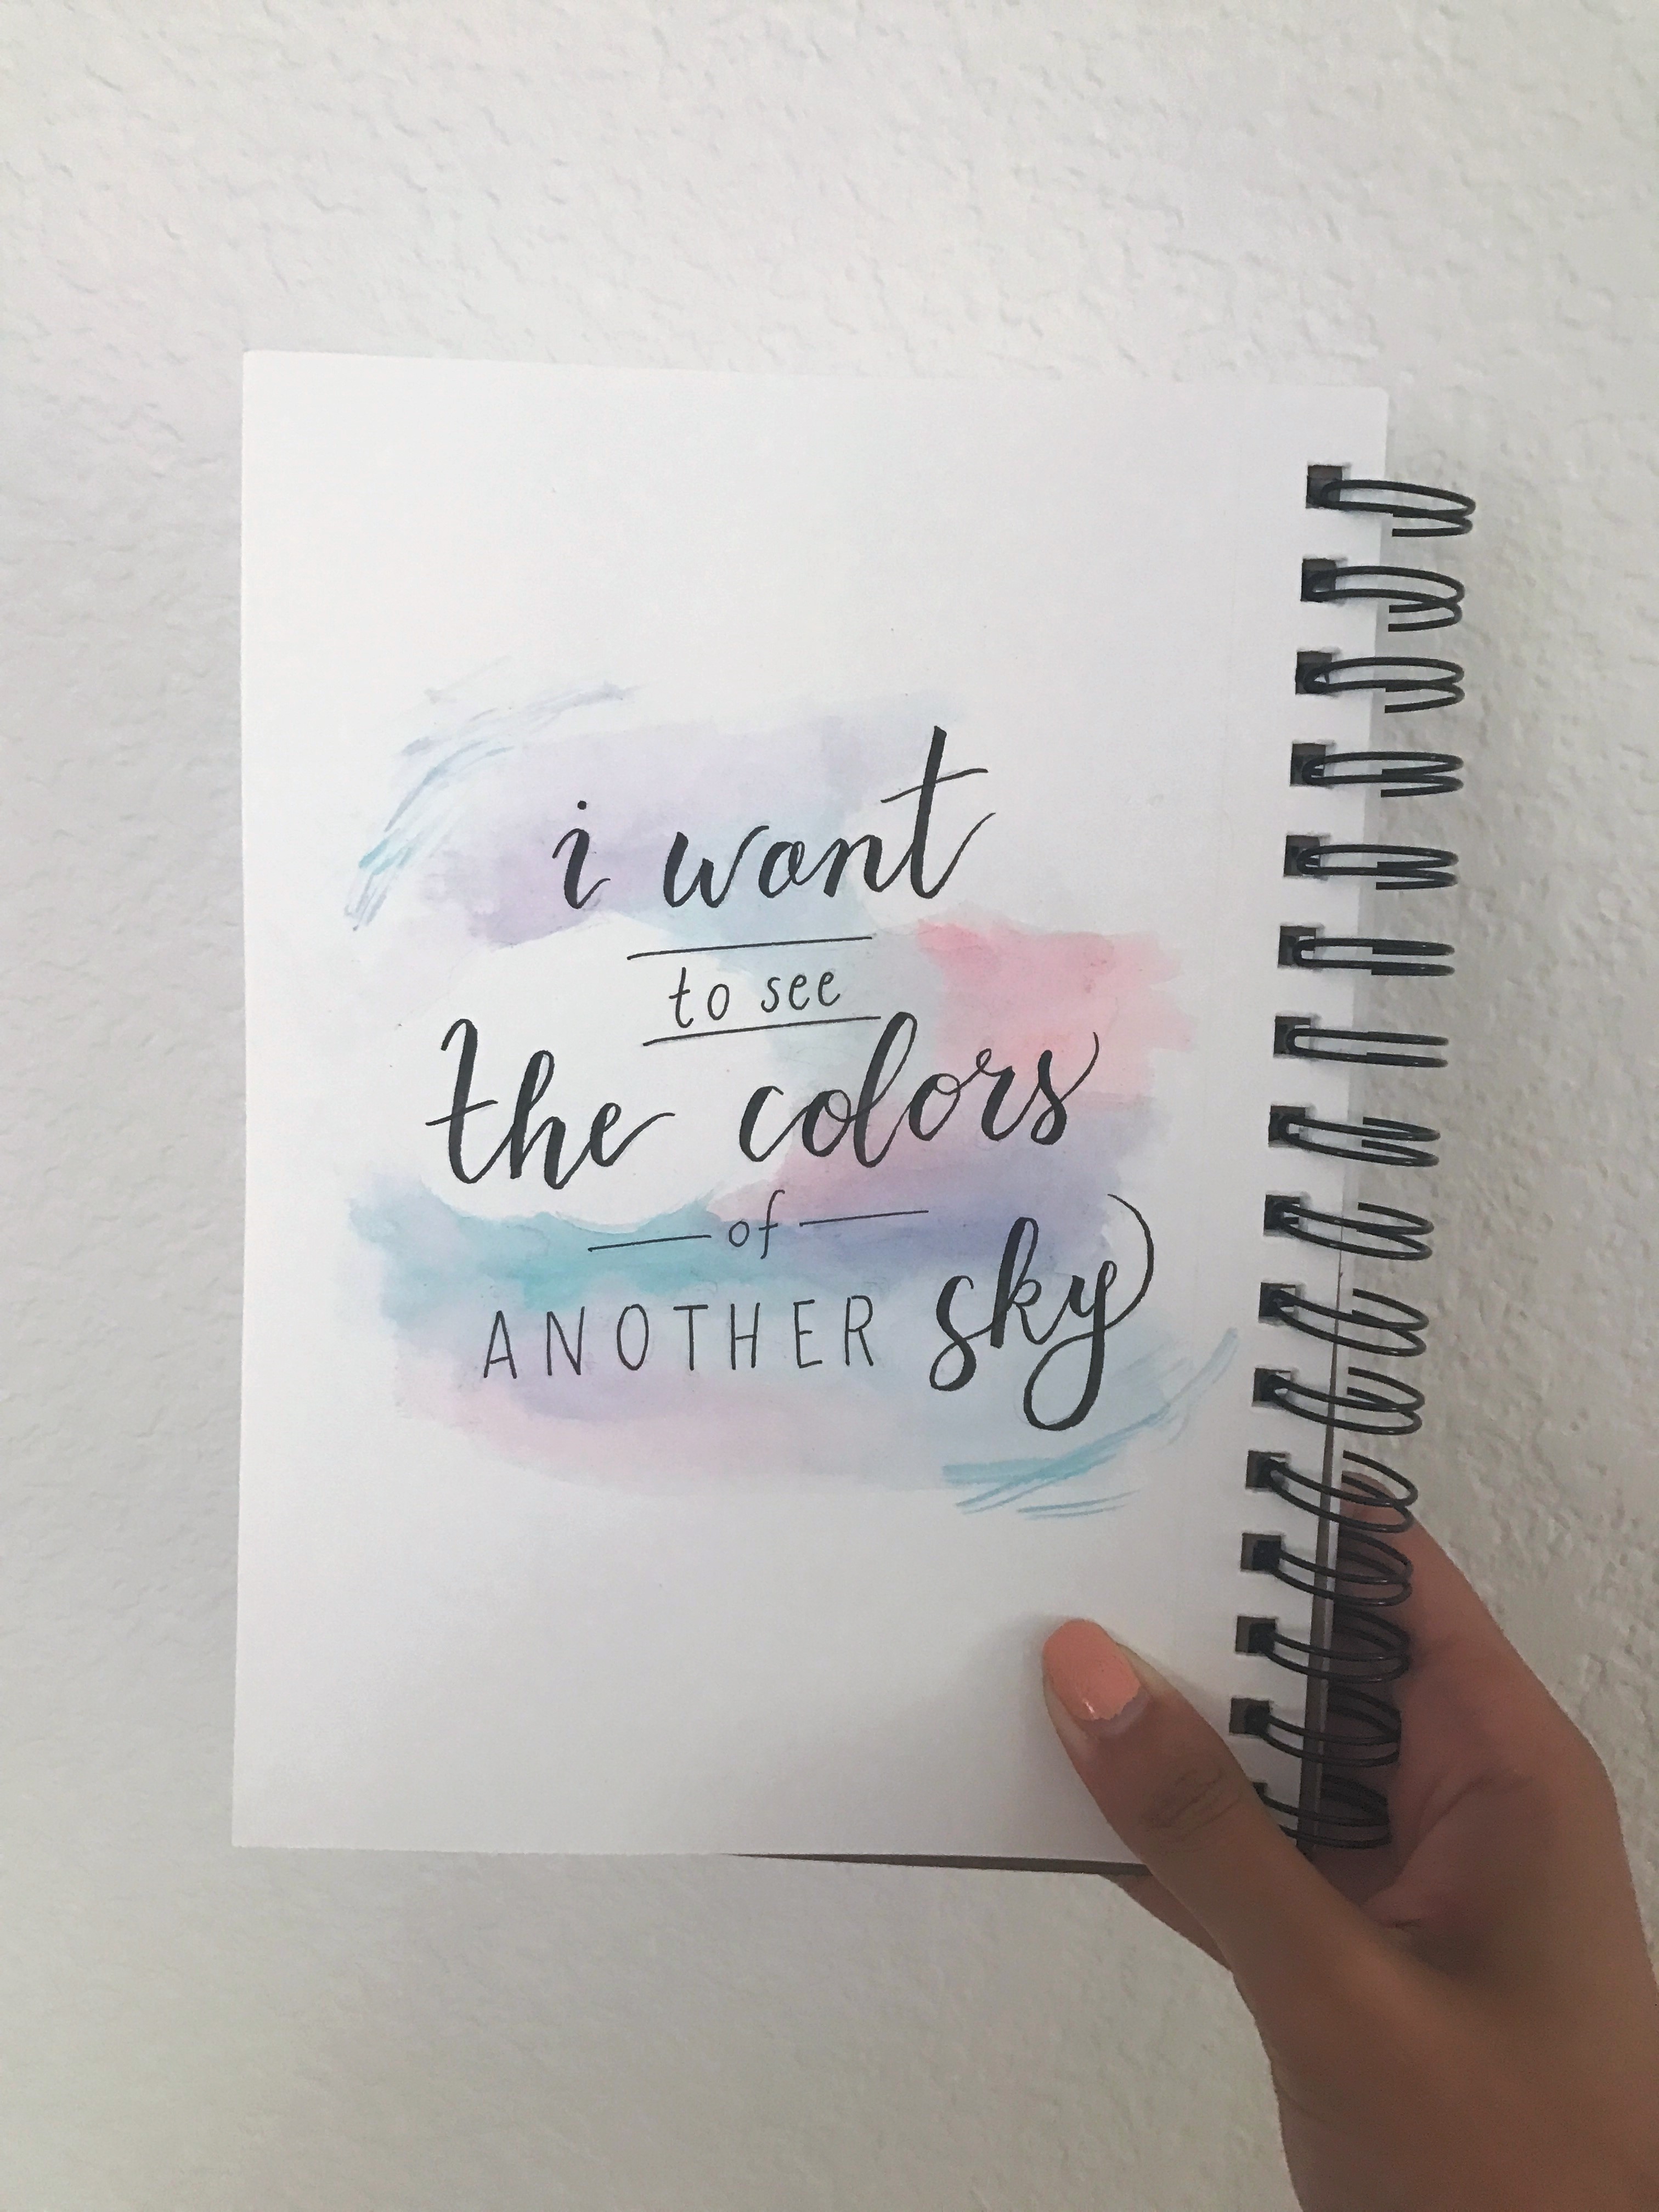 i want
to see
the colors
of
ANOTHER sky